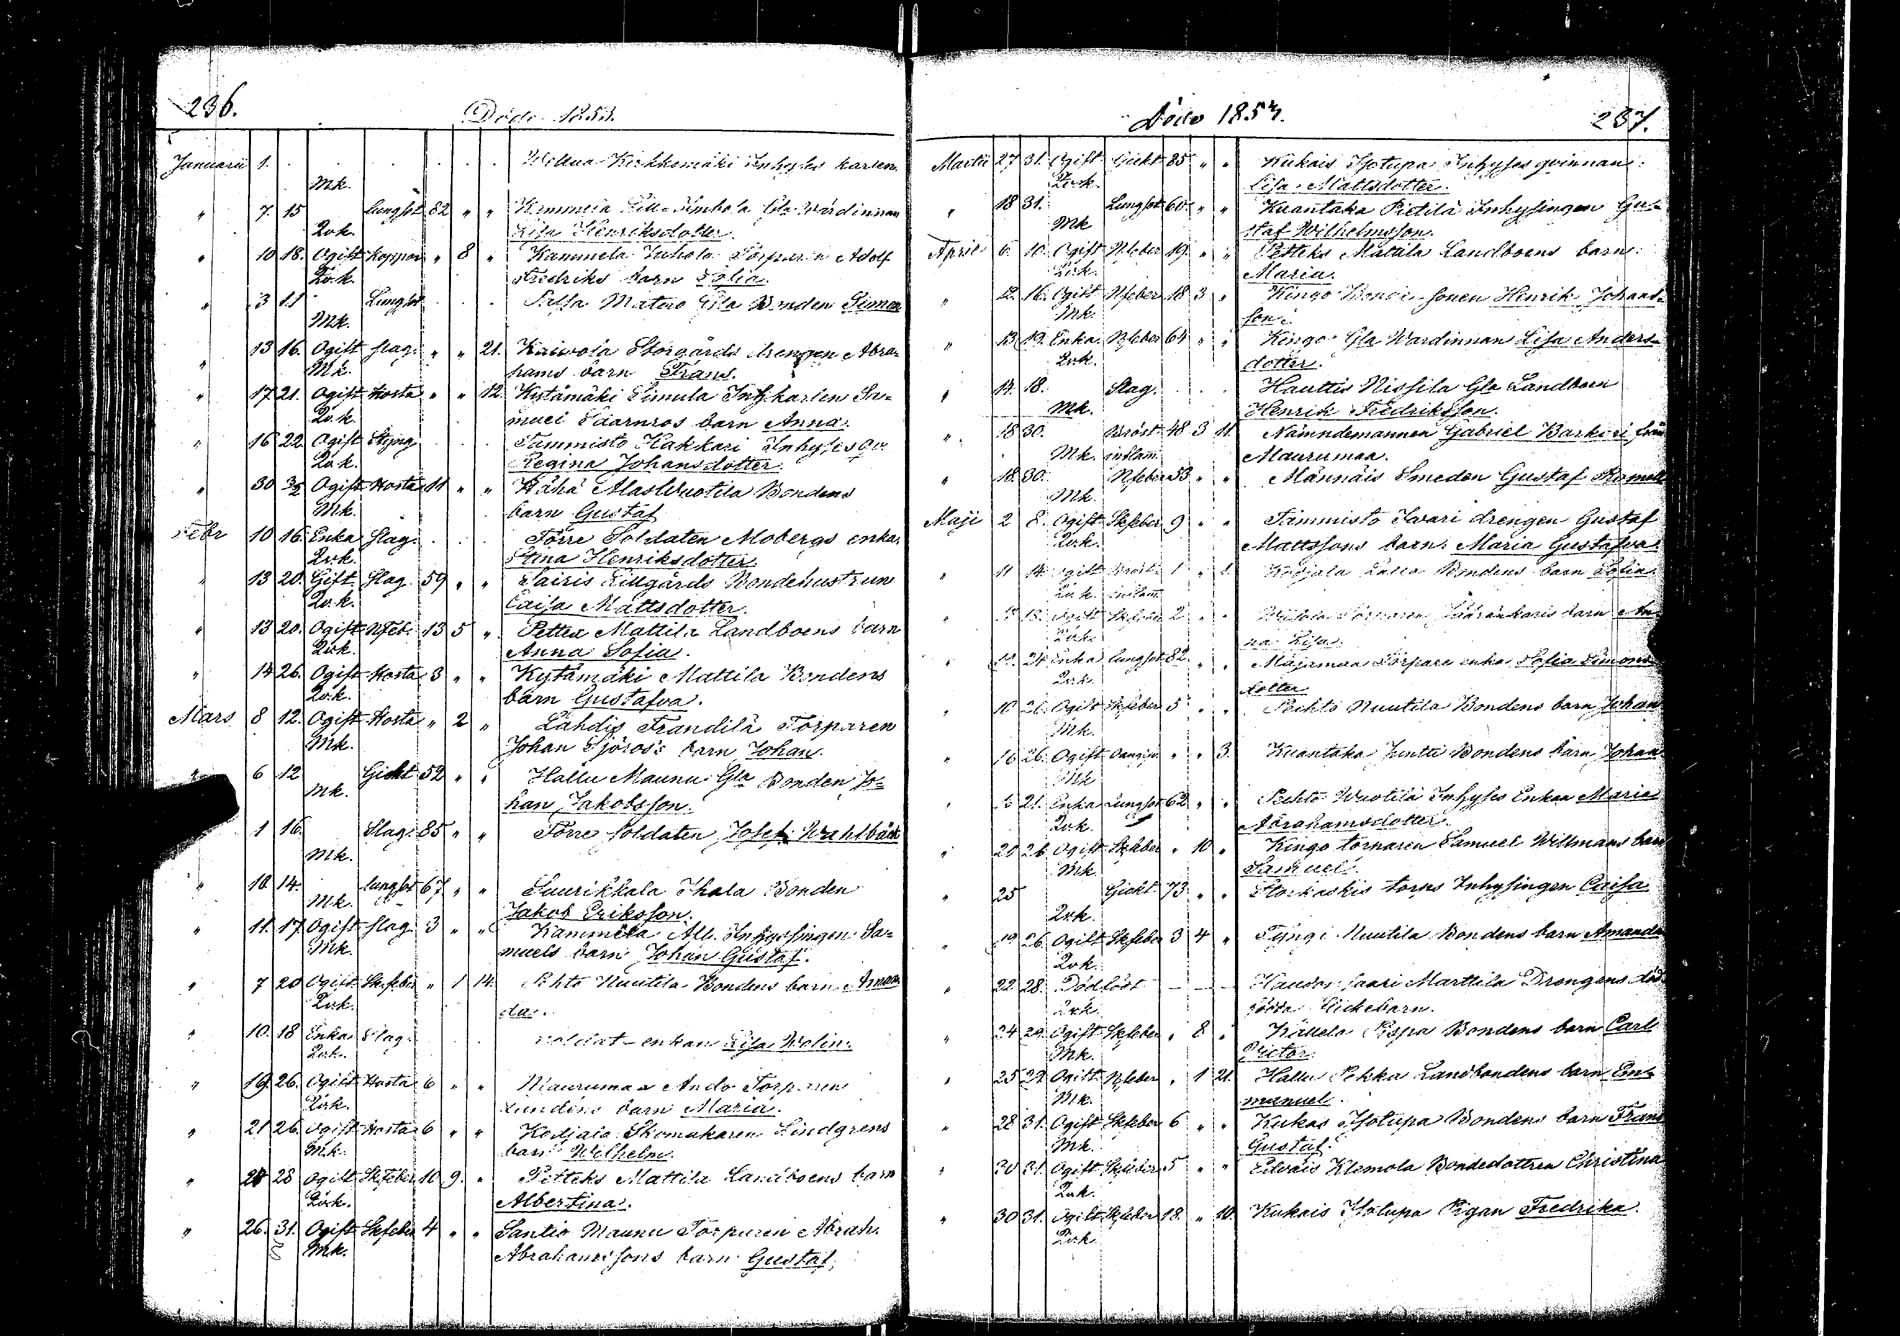 236.
Döde 1853.
Januarii 1. Kirkkomäki Inhyses karlen
Mk.
" 7. 15 Lungsot 82 " " Kammela Lill-Simbola Gla Värdinnan
Qvk. Lisa Henriksdotter.
" 10 18. Ogift Koppor " 8 " Kammela Juhola Torparen Adolf
Qvk. Fredriks barn Sofia.
" 3 11 Lungsot Matero Gla Bonden Simon
Mk.
" 13 16. Ogift slag. " " 21. Kaivola Storgårds drengen Abra-
Mk. hams barn Frans.
" 17 21. Ogift Hosta " " 12. Kytämäki Simula Inh.karlen Sa-
Qvk. muel barn Anna.
" 16 22. Ogift Styng Tammisto Kakkari Inhyses qv.
Qvk. Regina Johansdotter.
" 30 Ogift Hosta 11 " " Hähä AlasWuotila Bondens
Mk. barn Gustaf
Febr 10 16. Enka slag. Förre Soldaten Mobergs enka
Qvk. Stina Henriksdotter.
" 13 20. Gift Slag. 59 " " Sairis Lillgårds Bondehustrun
Qvk. Caisa Mattsdotter.
" 13 20. Ogift Nfeb. 13 5 " Mattila Landboens barn
Qvk. Anna Sofia.
" 14 26. Ogift Hosta 3 " " Kytämäki Mattila Bondens
Qvk. barn Gustafva.
Mars 8 12. Ogift Hosta " 2 " Lahdis Frandilä Torparen
Mk. Johan Sjöros's barn Johan.
" 6 12 Gickt 52 " " Hallu Maunu Gla Bonden Jo-
Mk. han Jakobsson.
1 16. Slag. 85 " " Förre soldaten Josef Wahlbäck
Mk.
" 10. 14. lungsot 67 " " Suurikkala Ihala Bonden
Mk. Jakob Eriksson.
" 11. 17. Ogift slag. 3 " " Kammela Inhysingen Sa-
Mk. muels barn Johan Gustaf.
" 7 20 Ogift Skfeber " 1 14. Pehto Nuutila Bondens barn Aman-
Qvk. da.
" 10. 18 Enka Slag. soldat-enkan Lisa Wolin.
Qvk.
" 19. 26. Ogift Hosta 6 " " Maurumaa Ando Torparen
Qvk. Lundéns barn Maria.
" 21 26. Ogift Hosta 6 " " Korjais Skomakaren Lindgrens
Mk. barn Wilhelm.
" 28 Ogift Skfeber 10 9. " Petteks Mattila Landboens barn
Qvk. Albertina.
" 26. 31. Ogift Skfeber 4 " " Santio Maunu Torparen Abrah.
Mk. Abrahamssons barn Gustaf.
Döde 1853.
237.
Martii 27 31. Ogift Gickt 85 " " Kukais Isotupa Inhyses qvinnan
Qvk. Lisa Mattsdotter.
" 18 31. Lungsot 60 " " Kuantaka Pietilä Inhysingen Gu-
Mk staf Wilhelmsson.
April 6. 10. Ogift Nfeber 19. " " Petteks Mattila Landboens barn
Qvk. Maria.
" 12. 16. Ogift Nfeber 18 3 " Kingo Bonde-sonen Henrik Johans-
Mk. son.
" 13 19. Enka Nfeber 64 " " Kingo Gla Wardinnan Lisa Anders-
Qvk. dotter.
" 14. 18. Slag. Hauttis Nissila Gla Landboen
Mk. Henrik Fredriksson.
" 18 30. Bröst 48 3 11. Nämndemannen Gabriel från
Mk. inflam. Maurumaa.
" 18. 30. Nfeber 53 " " Männäis Smeden Gustaf
Mk.
Maji 2 8. Ogift Skfeber 9 " " Tammisto Ivari drengen Gustaf
Qvk. Mattssons barn Maria Gustafva.
" 11 14. Ogift Bröst 1 " Bondens barn Sofia
Qvk. inflam
" Ogift Skfeber 2 " " Torparen barn An-
Qvk. na Lisa.
" 24 Enka Lungsot 82. " " Majamaa Torpare enka Sofia Simons-
Qvk. dotter.
" 10 26. Ogift Skfeber 5 " " Pehto Nuutila Bondens barn Johan
Mk.
" 16 26. Ogift " " 3. Kuantaka Juntti Bondens barn Johan
Mk
" 21. Enka Lungsot 62 " " Pehto Wuotila Inhyses Enkan Maria
Qvk. Abrahamsdotter.
" 20 26. Ogift Skfeber " 10 " Kingo torparen Samuel Willmans barn
Mk. Samuel.
" 25 Gickt 73 " " torps Inhysingen Caisa
Qvk.
" 19 26. Ogift Skfeber 3 4 " Nuutila Bondens barn Amanda
Qvk.
" 22. 28. Dödfödt — — Saari Marttila Drengens död-
Qvk. födda flickebarn.
" 24 29. Ogift Skfeber " 8 " Bondens barn Carl
Mk. Victor.
" 25 29. Ogift Nfeber " 1 21. Hallu Pekka Landbondens barn Em-
Mk. manuel.
" 28 31. Ogift Skfeber 6 " " Kukas Isotupa Bondens barn Frans
Mk. Gustaf.
" 30 31. Ogift Skfeber 5 " " Klemola Bondedottren Christina
Qvk.
" 30 31. Ogift Skfeber 18. " 10. Kukais Isotupa Pigan Fredrika.
Qvk.